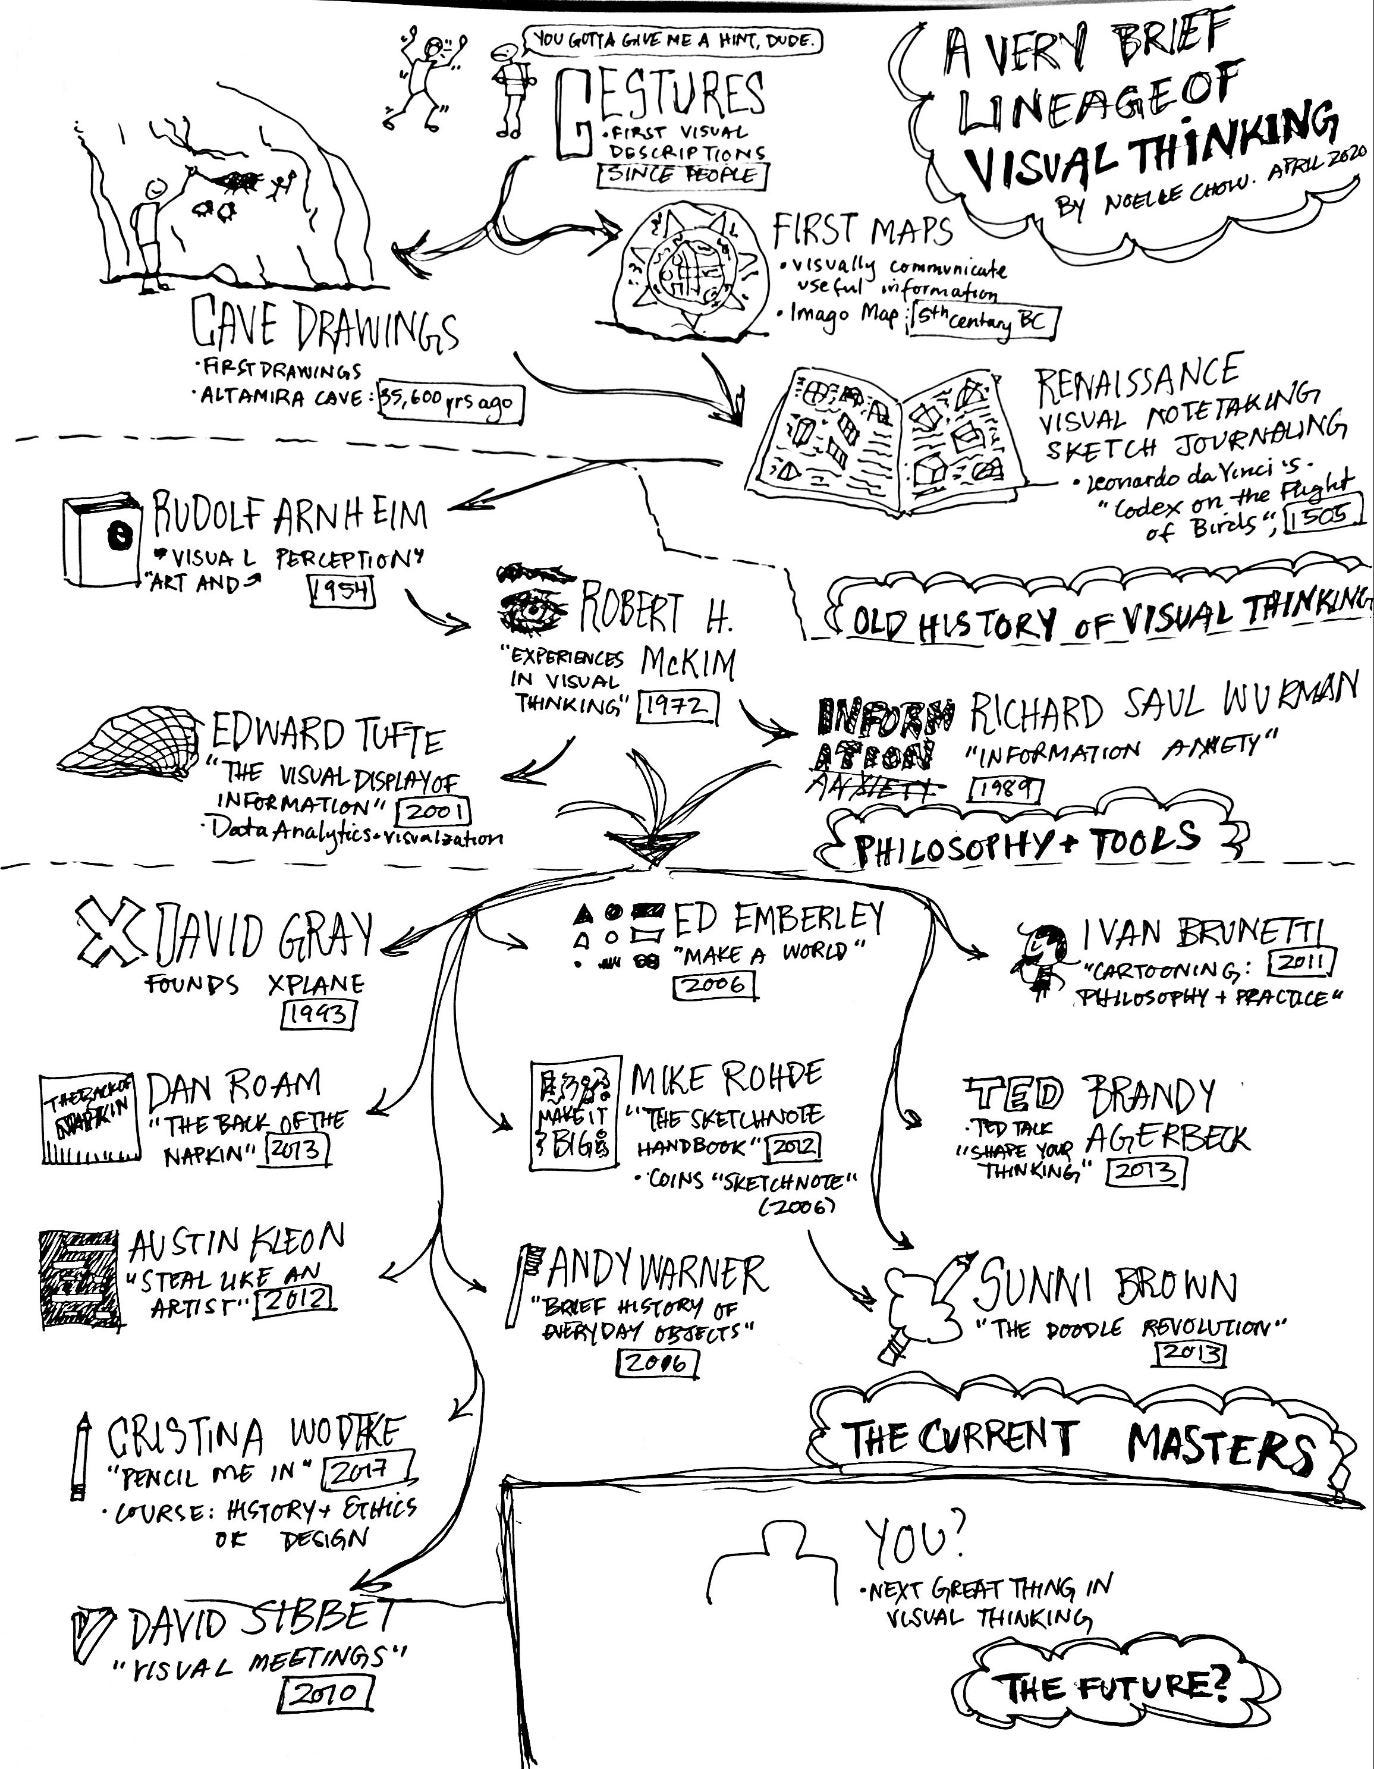 YOU GOTTA GIVE ME A HINT, DUDE.
GESTURES
• FIRST VISUAL
DESCRIPTIONS
SINCE PEOPLE
A VERY BRIEF
LINEAGE OF
VISUAL THINKING
BY NOELLE CHOW. APRIL 2020
FIRST MAPS
• visually communicate
useful information
• Imago Map: 5th century BC
CAVE DRAWINGS
• FIRST DRAWINGS
• ALTAMIRA CAVE: 35,600 yrs ago
RENAISSANCE
VISUAL NOTETAKING
SKETCH JOURNALING
• Leonardo da Vinci's
"Codex on the Flight
of Birds", 1505
OLD HISTORY OF VISUAL THINKING
RUDOLF ARNHEIM
• VISUAL PERCEPTION"
"ART AND
1954
ROBERT H.
McKIM
"EXPERIENCES
IN VISUAL
THINKING" 1972
INFORM
ATION
ANXIETY
RICHARD SAUL WURMAN
"INFORMATION ANXIETY"
1989
EDWARD TUFTE
"THE VISUAL DISPLAY OF
INFORMATION" 2001
• Data Analytics + visualization
PHILOSOPHY + TOOLS
X DAVID GRAY
FOUNDS XPLANE
1993
ED EMBERLEY
"MAKE A WORLD"
2006
IVAN BRUNETTI
"CARTOONING: 2011
PHILOSOPHY + PRACTICE"
THE BACK OF
NAPKIN
DAN ROAM
"THE BACK OF THE
NAPKIN" 2013
MAKE IT
BIG
MIKE ROHDE
"THE SKETCHNOTE
HANDBOOK" 2012
• COINS "SKETCHNOTE"
(2006)
TED
BRANDY
AGERBECK
• TED TALK
"SHAPE YOUR
THINKING" 2013
AUSTIN KLEON
"STEAL LIKE AN
ARTIST" 2012
ANDY WARNER
"BRIEF HISTORY OF
EVERYDAY OBJECTS"
2006
SUNNI BROWN
"THE DOODLE REVOLUTION"
2013
THE CURRENT MASTERS
CRISTINA WODTKE
"PENCIL ME IN" 2017
• COURSE: HISTORY + ETHICS
OF DESIGN
DAVID SIBBET
"VISUAL MEETINGS"
2010
YOU?
• NEXT GREAT THING IN
VISUAL THINKING
THE FUTURE?